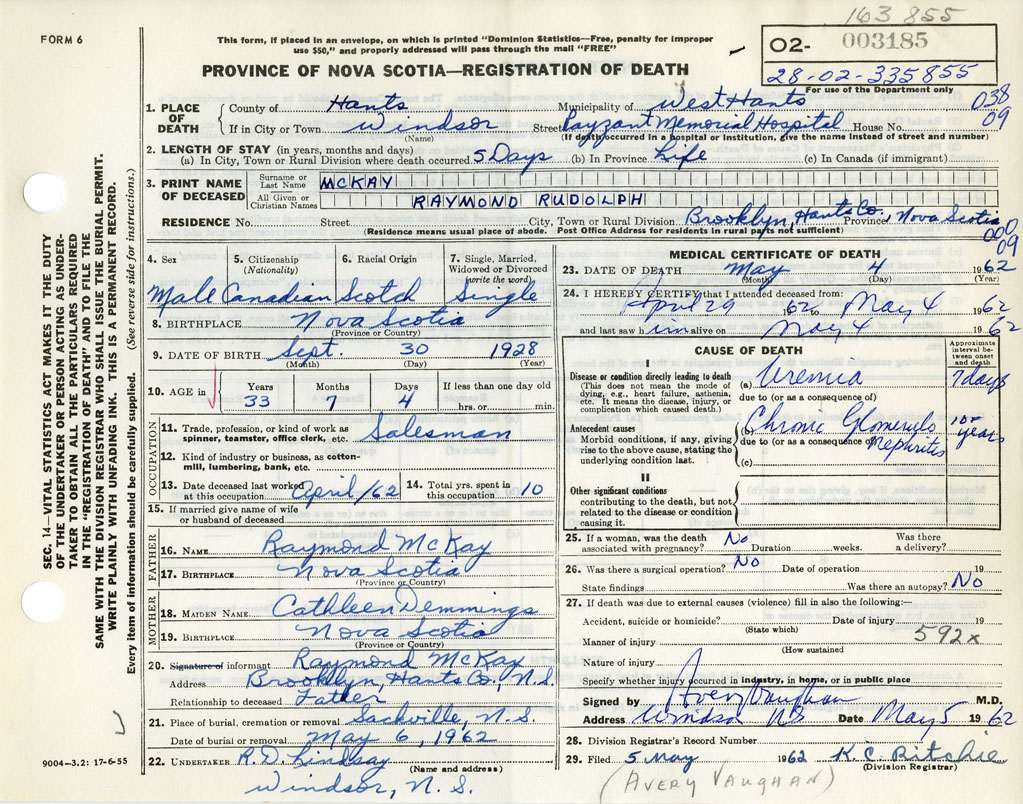 163 855
FORM 6
This form, if placed in an envelope, on which is printed "Dominion Statistics—Free, penalty for improper
use $50," and properly addressed will pass through the mail "FREE"
PROVINCE OF NOVA SCOTIA—REGISTRATION OF DEATH
02- 003185
28-02-335855
For use of the Department only
038
09
1. PLACE OF DEATH
County of Hants Municipality of West Hants
If in City or Town Windsor Street Payzant Memorial Hospital House No.
(Name) (If death occurred in a hospital or institution, give the name instead of street and number)
2. LENGTH OF STAY (in years, months and days)
(a) In City, Town or Rural Division where death occurred 5 Days (b) In Province Life (c) In Canada (if immigrant)
3. PRINT NAME OF DECEASED
Surname or Last Name MCKAY
All Given or Christian Names RAYMOND RUDOLPH
RESIDENCE No. Street City, Town or Rural Division Brooklyn, Hants Co. Province Nova Scotia
(Residence means usual place of abode. Post Office Address for residents in rural parts not sufficient)
000
09
4. Sex 5. Citizenship (Nationality) 6. Racial Origin 7. Single, Married, Widowed or Divorced (write the word)
Male Canadian Scotch Single
8. BIRTHPLACE Nova Scotia
(Province or Country)
9. DATE OF BIRTH Sept. 30 1928
(Month) (Day) (Year)
10. AGE in Years Months Days If less than one day old
33 7 4 hrs. or min.
OCCUPATION
11. Trade, profession, or kind of work as
spinner, teamster, office clerk, etc. Salesman
12. Kind of industry or business, as cotton-
mill, lumbering, bank, etc.
13. Date deceased last worked
at this occupation April/62 14. Total yrs. spent in
this occupation 10
15. If married give name of wife
or husband of deceased
FATHER
16. NAME Raymond McKay
17. BIRTHPLACE Nova Scotia
(Province or Country)
MOTHER
18. MAIDEN NAME Cathleen Demmings
19. BIRTHPLACE Nova Scotia
(Province or Country)
20. Signature of informant Raymond McKay
Address Brooklyn, Hants Co., N.S.
Relationship to deceased Father
21. Place of burial, cremation or removal Sackville, N.S.
Date of burial or removal May 6, 1962
22. UNDERTAKER R.D. Lindsay
(Name and address)
Windsor, N.S.
9004-3.2: 17-6-55
MEDICAL CERTIFICATE OF DEATH
23. DATE OF DEATH May 4 1962
(Month) (Day) (Year)
24. I HEREBY CERTIFY that I attended deceased from:
April 29 1962 to May 4 1962
and last saw him alive on May 4 1962
CAUSE OF DEATH
Approximate interval between onset and death
I
Disease or condition directly leading to death
(This does not mean the mode of
dying, e.g., heart failure, asthenia,
etc. It means the disease, injury, or
complication which caused death.)
(a) Uremia 7 days
due to (or as a consequence of)
Antecedent causes
Morbid conditions, if any, giving
rise to the above cause, stating the
underlying condition last.
(b) Chronic Glomerulo 10 years
due to (or as a consequence of) Nephritis
(c)
II
Other significant conditions
contributing to the death, but not
related to the disease or condition
causing it.
25. If a woman, was the death No Was there
associated with pregnancy? Duration weeks. a delivery?
26. Was there a surgical operation? No Date of operation 19
State findings Was there an autopsy? No
27. If death was due to external causes (violence) fill in also the following:—
Accident, suicide or homicide? Date of injury 19
(State which)
592x
Manner of injury
(How sustained)
Nature of injury
Specify whether injury occurred in industry, in home, or in public place
Signed by Avery Vaughan M.D.
Address Windsor NS Date May 5 1962
28. Division Registrar's Record Number
29. Filed 5 May 1962 K. C. Ritchie
(Division Registrar)
(AVERY VAUGHAN)
SEC. 14—VITAL STATISTICS ACT MAKES IT THE DUTY
OF THE UNDERTAKER OR PERSON ACTING AS UNDER-
TAKER TO OBTAIN ALL THE PARTICULARS REQUIRED
IN THE "REGISTRATION OF DEATH" AND TO FILE THE
SAME WITH THE DIVISION REGISTRAR WHO SHALL ISSUE THE BURIAL PERMIT.
WRITE PLAINLY WITH UNFADING INK. THIS IS A PERMANENT RECORD.
Every item of information should be carefully supplied. (See reverse side for instructions.)